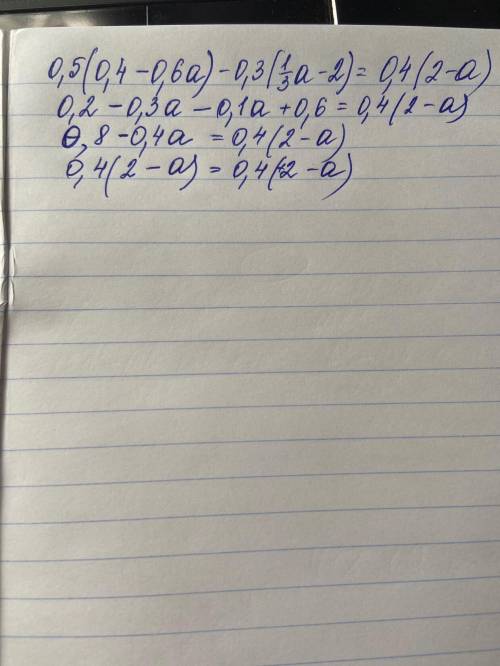 0,5(0,4-0,6a)-0,3(1/3a-2)=0,4(2-a)
0,2-0,3a-0,1a+0,6=0,4(2-a)
0,8-0,4a=0,4(2-a)
0,4(2-a)=0,4(2-a)